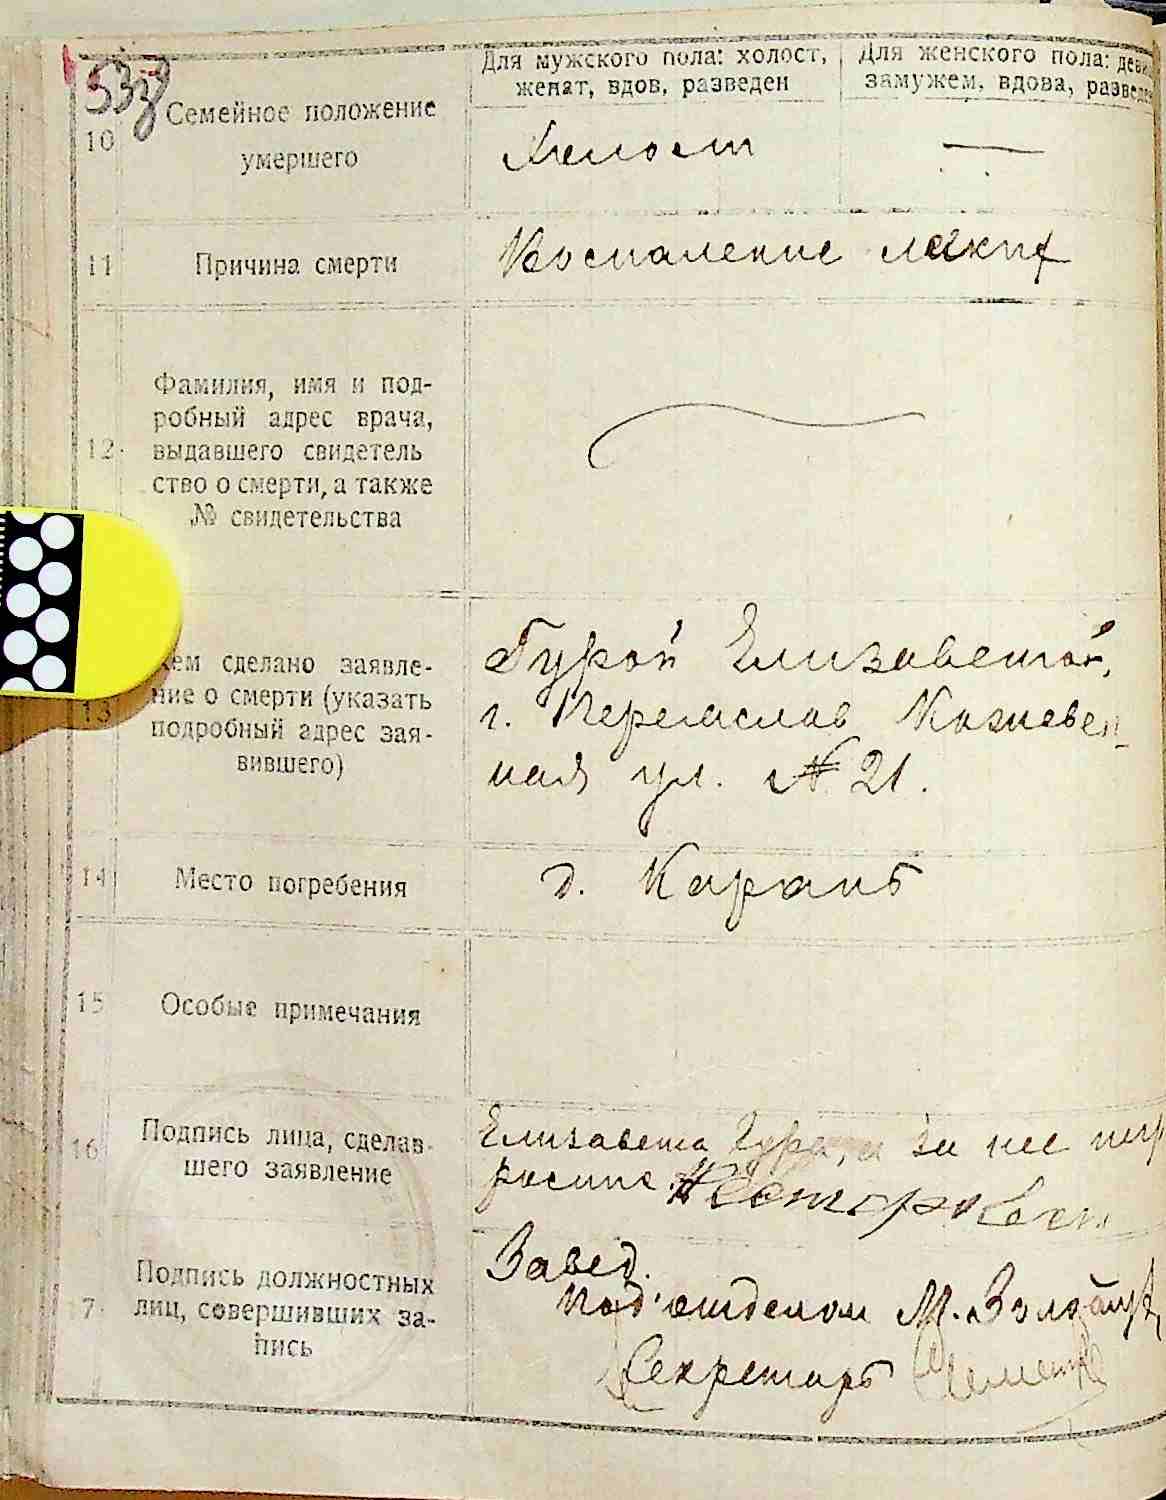 533
Для мужского пола: холост,
женат, вдов, разведен
Для женского пола: деви
замужем, вдова, разведен
10
Семейное положение
умершего
Холост
—
11
Причина смерти
Воспаление лёгких
12
Фамилия, имя и под-
робный адрес врача,
выдавшего свидетель
ство о смерти, а также
№ свидетельства
13
кем сделано заявле-
ние о смерти (указать
подробный адрес зая-
вившего)
Гурой Елизаветой,
г. Переяслав Казначей
ная ул. № 21.
14
Место погребения
д. Карань
15
Особые примечания
16
Подпись лица, сделав-
шего заявление
Елизавета Гура, а за нее
7
Подпись должностных
лиц, совершивших за-
пись
Завед.
Подотделом М.
Секретарь